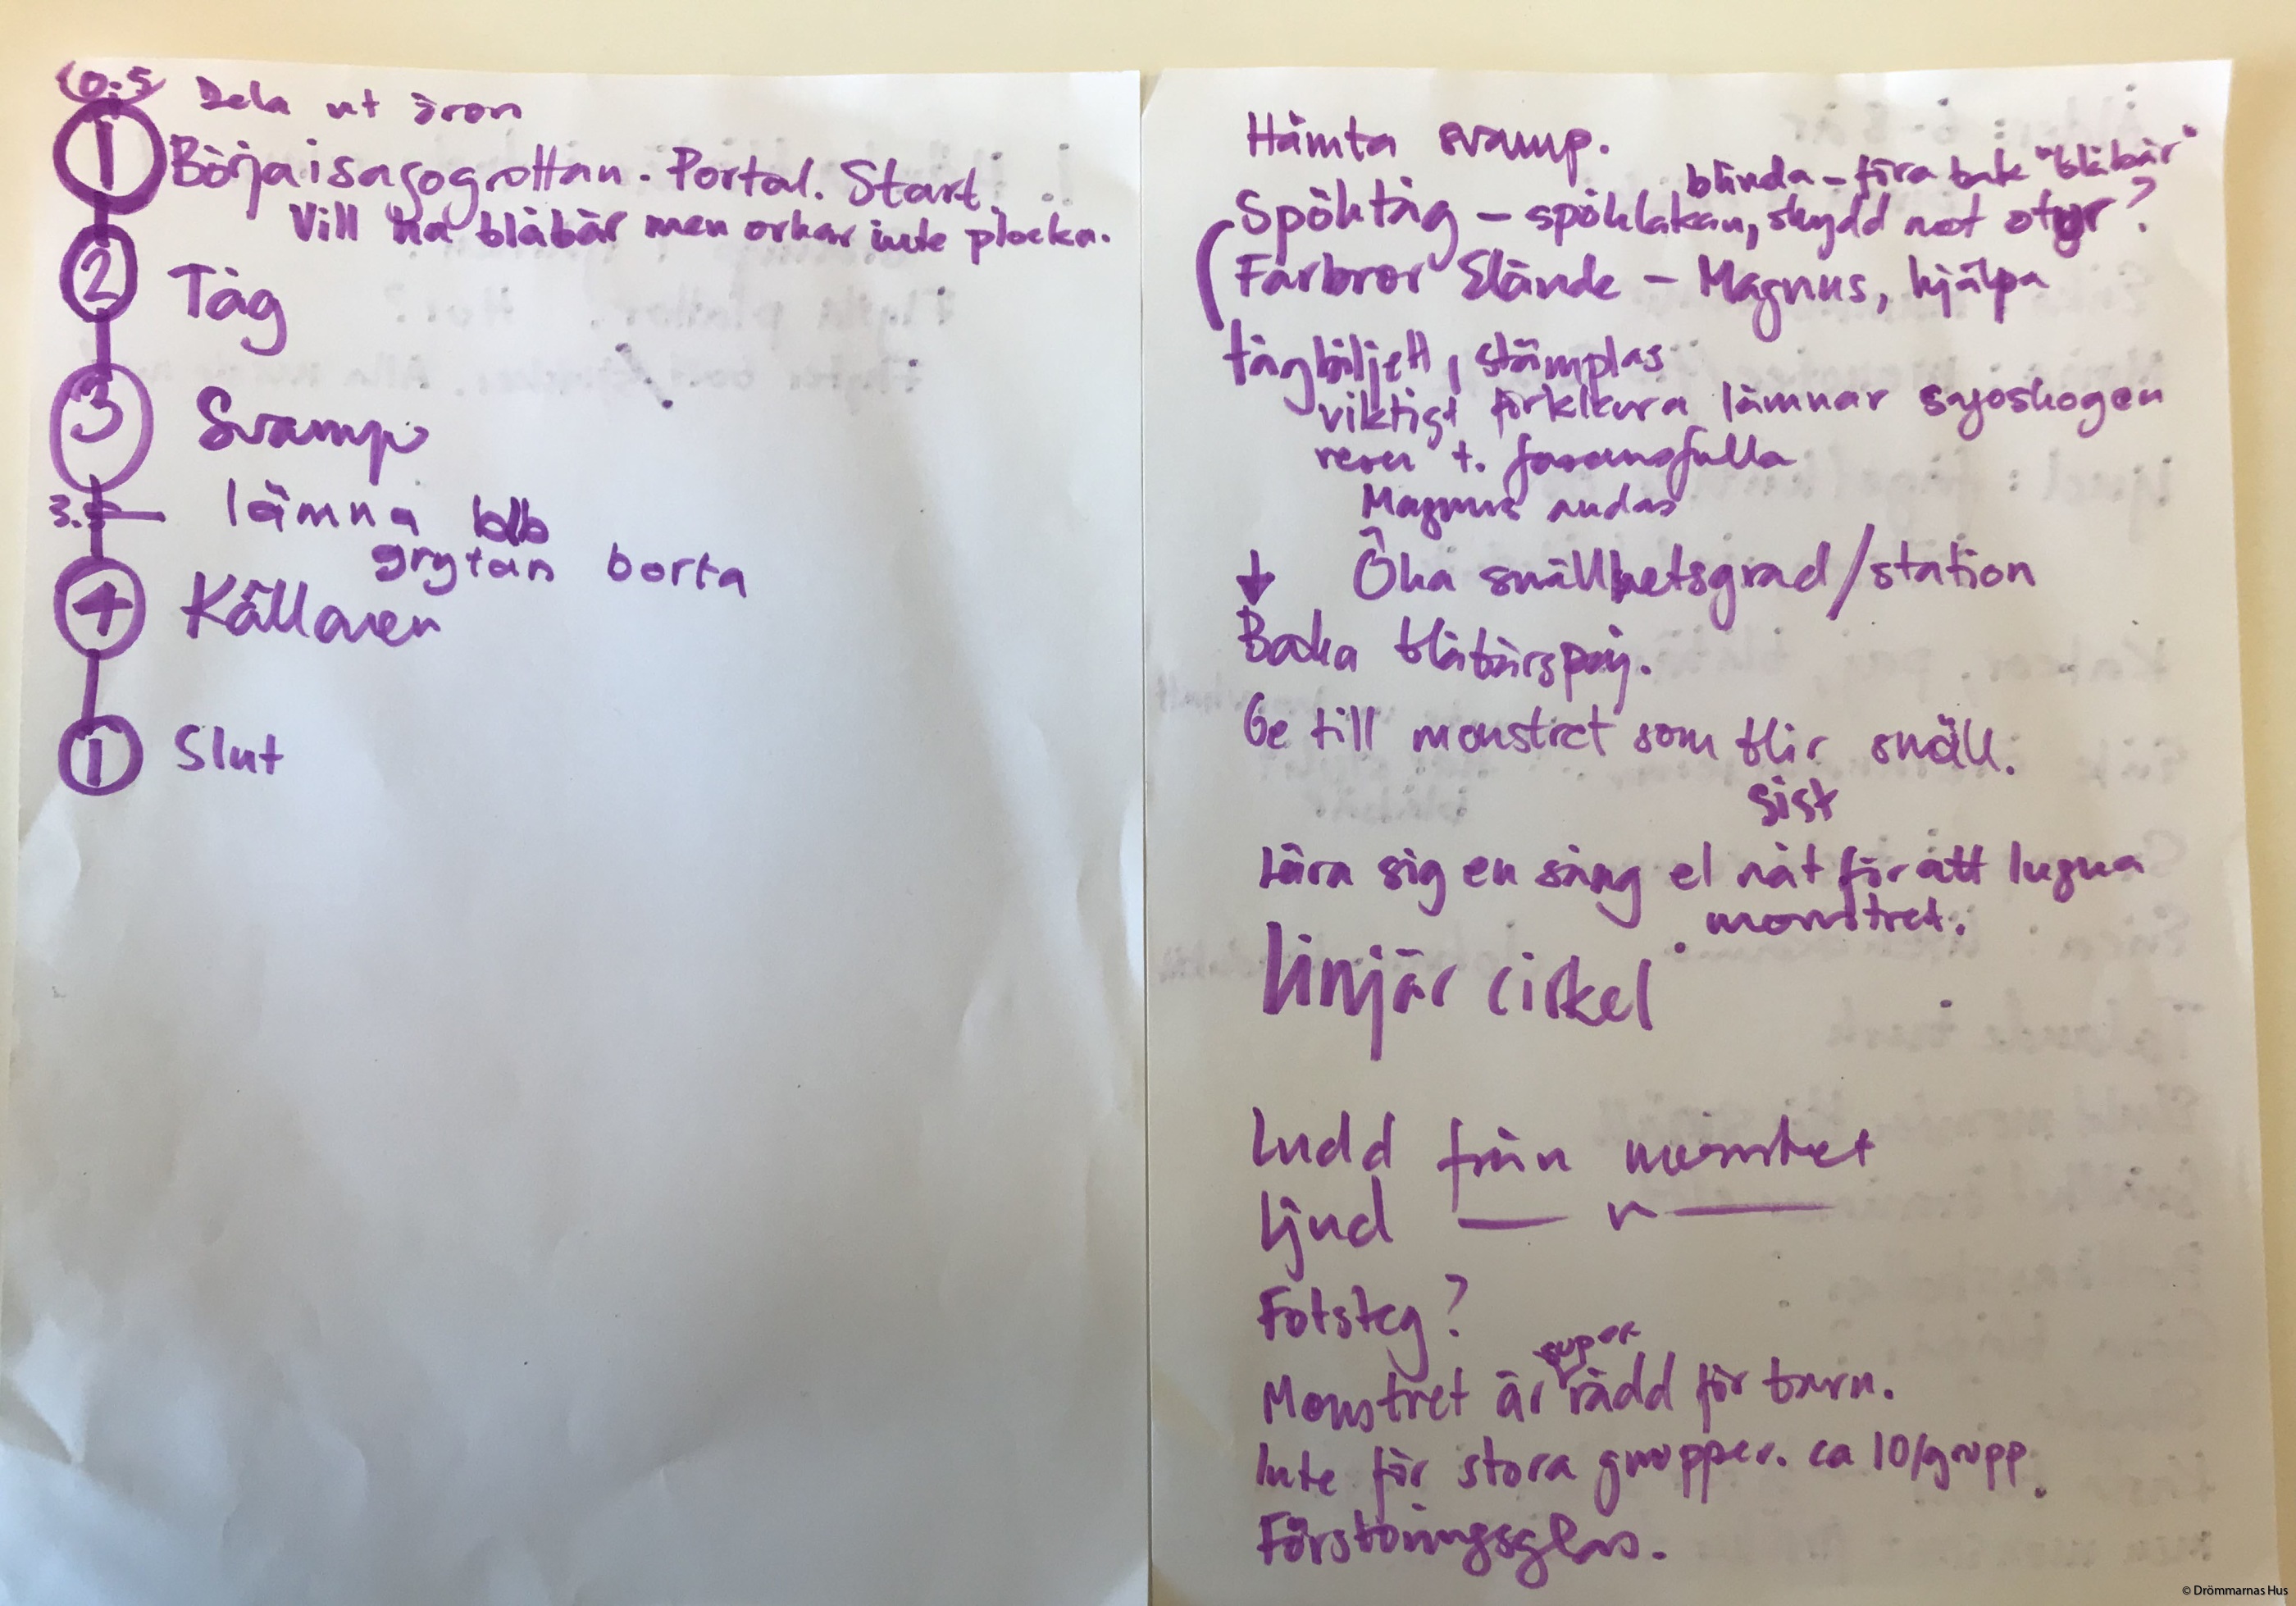 0.5 Dela ut öron
1 Börja i sagogrottan. Portal. Start.
Vill ha blåbär men orkar inte plocka.
2 Tåg
3 Svamp
3.5 lämna blb
grytan borta
4 Källaren
1 Slut
Hämta svamp.
blinda - föra bak "blåbär"
Spöktåg - spöklakan, skydd mot otyr?
Farbror Elände - Magnus, hjälpa
tågbiljett, stämplas
viktigt förklara lämnar sagoskogen
reser t. fasansfulla
Magnus andas
Öka snällhetsgrad/station
Baka blåbärspaj.
Ge till monstret som blir snäll.
sist
Lära sig en sång el nåt för att lugna
monstret.
linjär cirkel
Ludd från monstret
Ljud — " —
Fotsteg?
super
Monstret är rädd för barn.
Inte för stora grupper. ca 10/grupp.
Förstoringsglas.
© Drömmarnas Hus